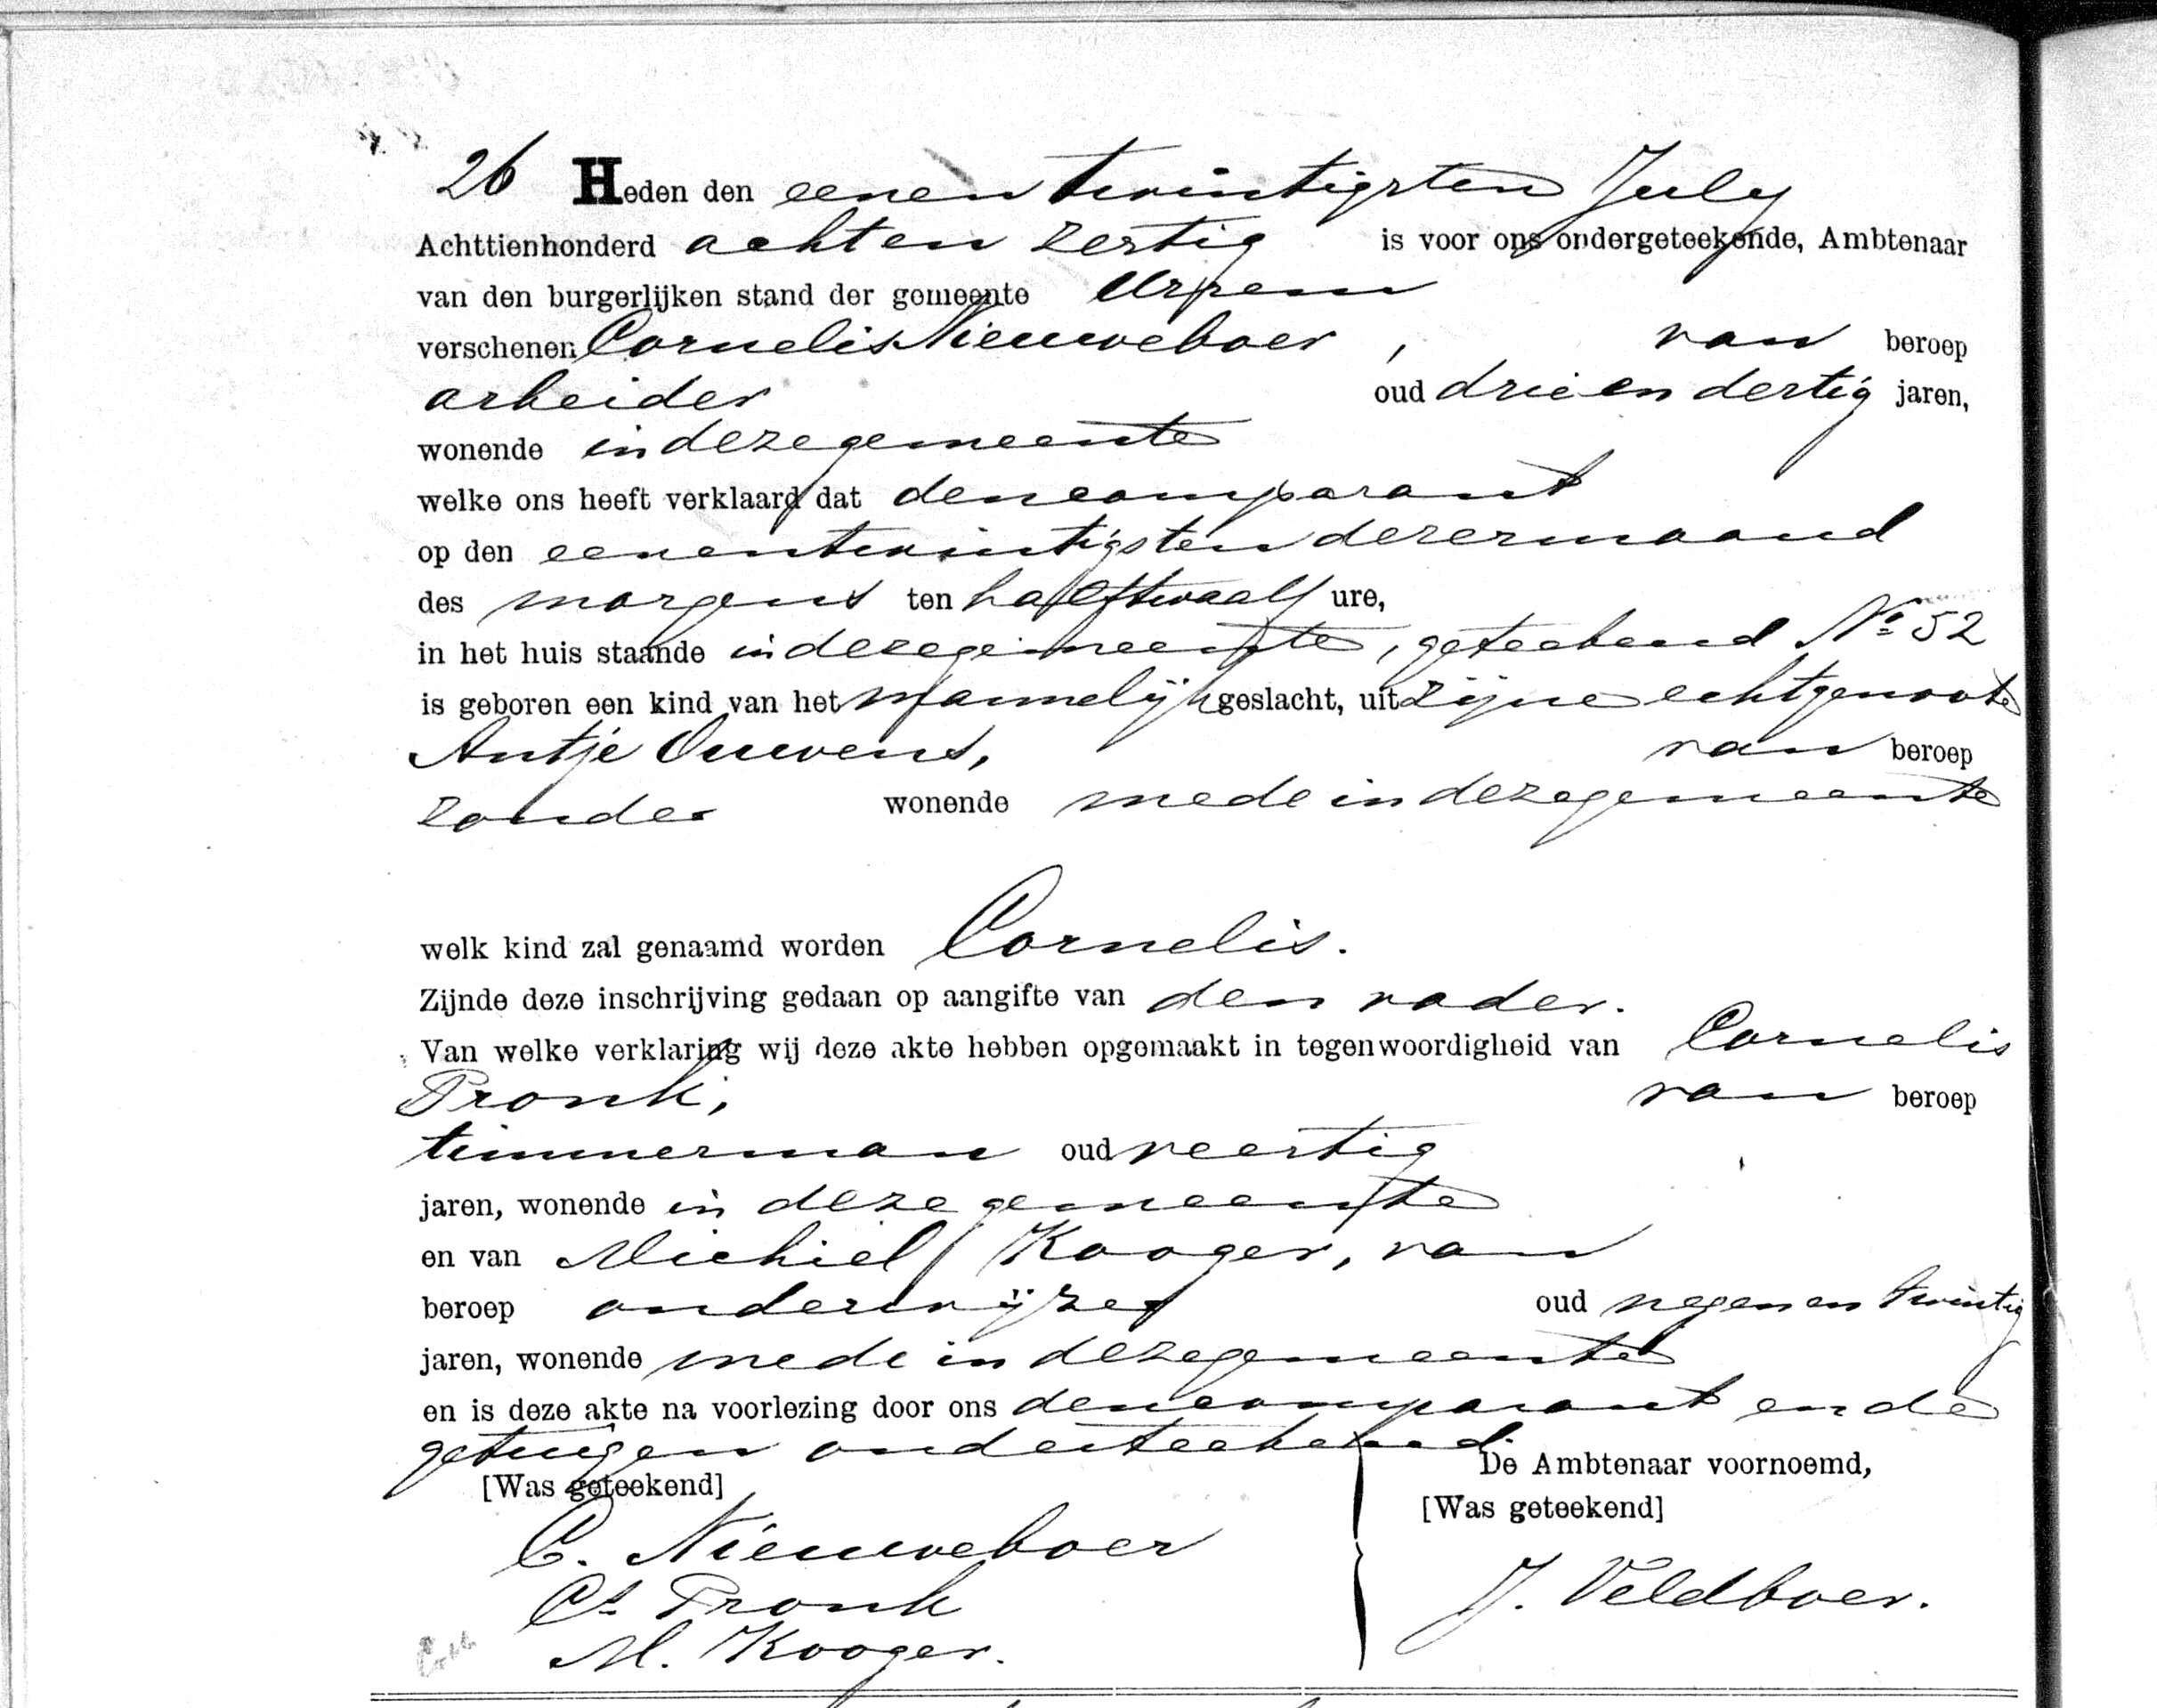 26 Heden den eenen twintigsten July
Achttienhonderd acht en zestig is voor ons ondergeteekende, Ambtenaar
van den burgerlijken stand der gemeente Ursem
verschenen Cornelis Nieuweboer, van beroep
arbeider oud drie en dertig jaren,
wonende in deze gemeente
welke ons heeft verklaard dat den comparant
op den eenentwintigsten dezer maand
des morgens ten half twaalf ure,
in het huis staande in deze gemeente, geteekend No 52
is geboren een kind van het mannelijk geslacht, uit zijne echtgenoote
Antje Ouwens, van beroep
zonder wonende mede in deze gemeente
welk kind zal genaamd worden Cornelis.
Zijnde deze inschrijving gedaan op aangifte van den vader.
Van welke verklaring wij deze akte hebben opgemaakt in tegenwoordigheid van Cornelis
Pronk, van beroep
timmerman oud veertig
jaren, wonende in deze gemeente
en van Michiel Kooger, van
beroep onderwijzer oud negen en twintig
jaren, wonende mede in deze gemeente
en is deze akte na voorlezing door ons den comparant en de
getuigen onderteekend.
De Ambtenaar voornoemd,
[Was geteekend]
[Was geteekend]
C. Nieuweboer
Cs Pronk
J. Veldboer.
M. Kooger.